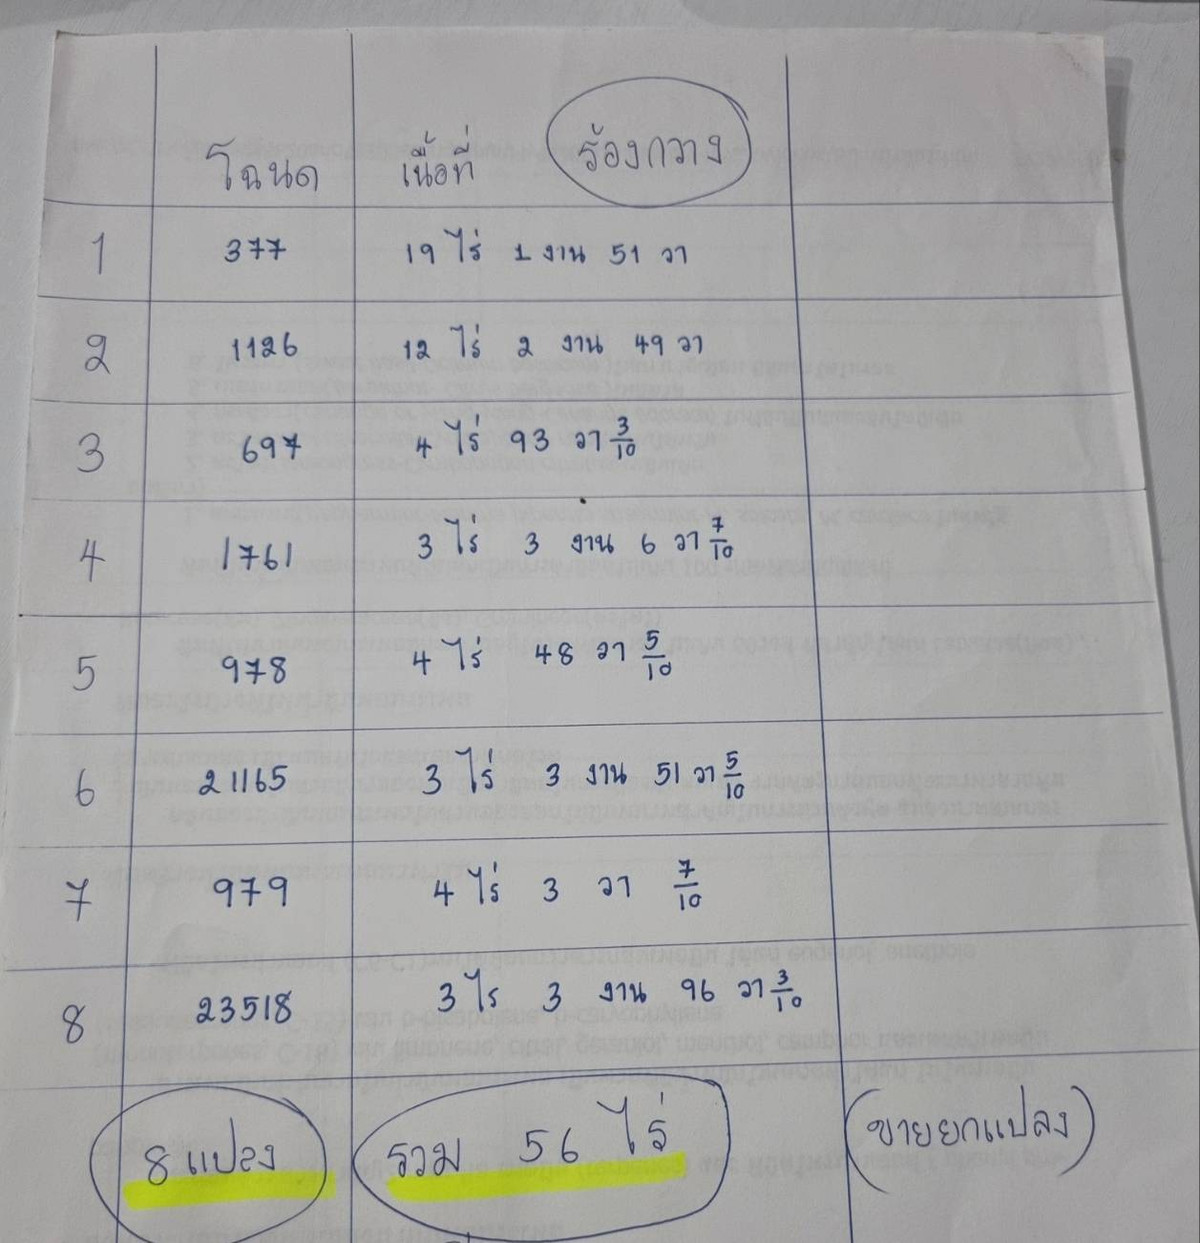 โฉนด เนื้อที่ ร้องกวาง
1 377 19 ไร่ 1 งาน 51 วา
2 1126 12 ไร่ 2 งาน 49 วา
3 697 4 ไร่ 93 วา 3/10
4 1761 3 ไร่ 3 งาน 6 วา 7/10
5 978 4 ไร่ 48 วา 5/10
6 21165 3 ไร่ 3 งาน 51 วา 5/10
7 979 4 ไร่ 3 วา 7/10
8 23518 3 ไร 3 งาน 96 วา 3/10
8 แปลง รวม 56 ไร่ (ขายยกแปลง)